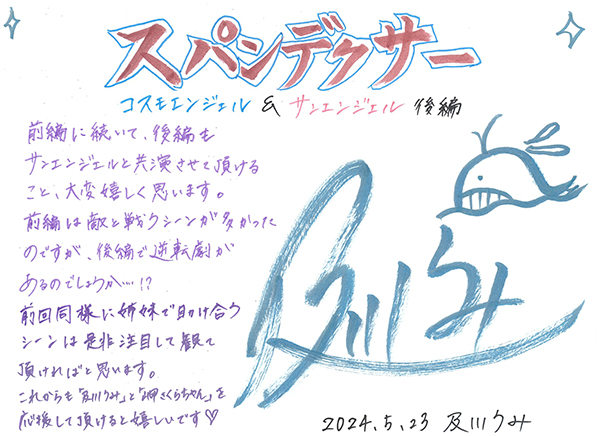 スパンデクサー
コスモエンジェル & サンエンジェル 後編
前編に続いて、後編も
サンエンジェルと共演させて頂ける
こと、大変嬉しく思います。
前編は敵と戦うシーンが多かった
のですが、後編で逆転劇が
あるのでしょうか…!?
前回同様に姉妹で助け合う
シーンは是非注目して観て
頂ければと思います。
これからも「及川うみ」と「岬さくらちゃん」を
応援して頂けると嬉しいです♡
及川うみ
2024.5.23 及川うみ